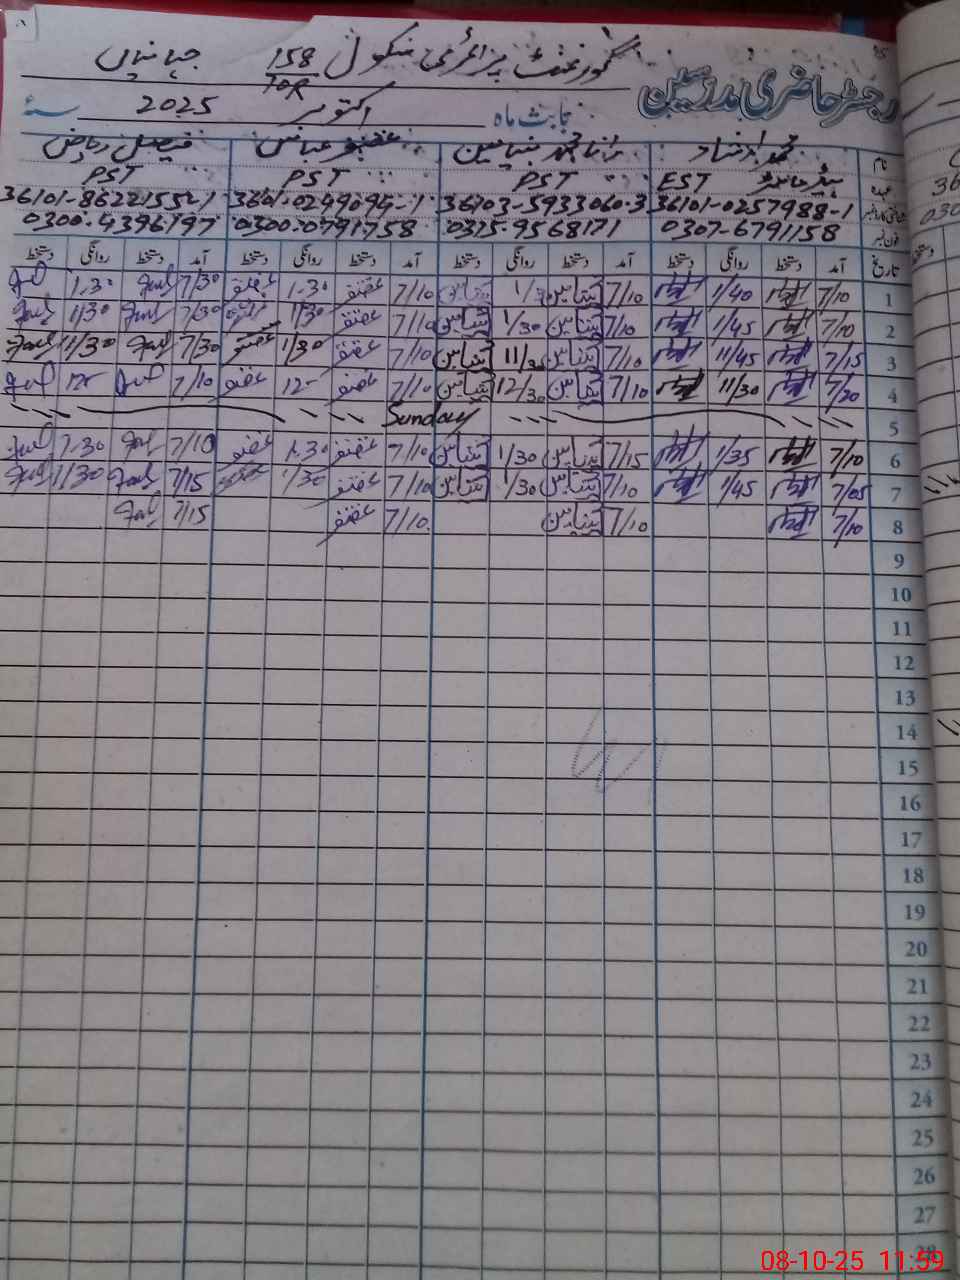 گورنمنٹ پرائمری سکول 158 جہانیاں
10R
رجسٹر حاضری مدرسین
بابت ماہ اکتوبر 2025 سنہ
نام محمد ارشاد رانا محمد بنیامین غضنفر عباس فیصل ریاض
عہدہ ہیڈ ماسٹر EST PST PST PST
36101-0257988-1 36103-5933060-3 3601-0249094-1 36101-8622155-1
فون نمبر 0307-6791158 0315-9568171 0300-0791758 0300-4396197
تاریخ آمد دستخط روانگی دستخط آمد دستخط روانگی دستخط آمد دستخط روانگی دستخط آمد دستخط روانگی دستخط
1 7/10 1/40 7/10 بنیامین بنیامین 7/10 غضنفر 1.30 غضنفر 7/30 1.30
2 7/10 1/45 7/10 بنیامین 1/30 بنیامین 7/10 غضنفر 1/30 7/30 1/30
3 7/15 11/45 7/10 بنیامین 11/30 بنیامین 7/10 غضنفر 1/30 غضنفر 7/30 11/30
4 7/20 11/30 7/10 بنیامین 12/30 بنیامین 7/10 غضنفر 12- غضنفر 7/10
5 Sunday
6 7/10 1/35 7/15 بنیامین 1/30 بنیامین 7/10 غضنفر 1.30 غضنفر 7/10 1.30
7 7/05 1/45 7/10 بنیامین 1/30 بنیامین 7/10 غضنفر 1/30 7/15 1/30
8 7/10 7/10 بنیامین 7/10 غضنفر 7/15
9
10
11
12
13
14
15
16
17
18
19
20
21
22
23
24
25
26
27
28
08-10-25 11:59